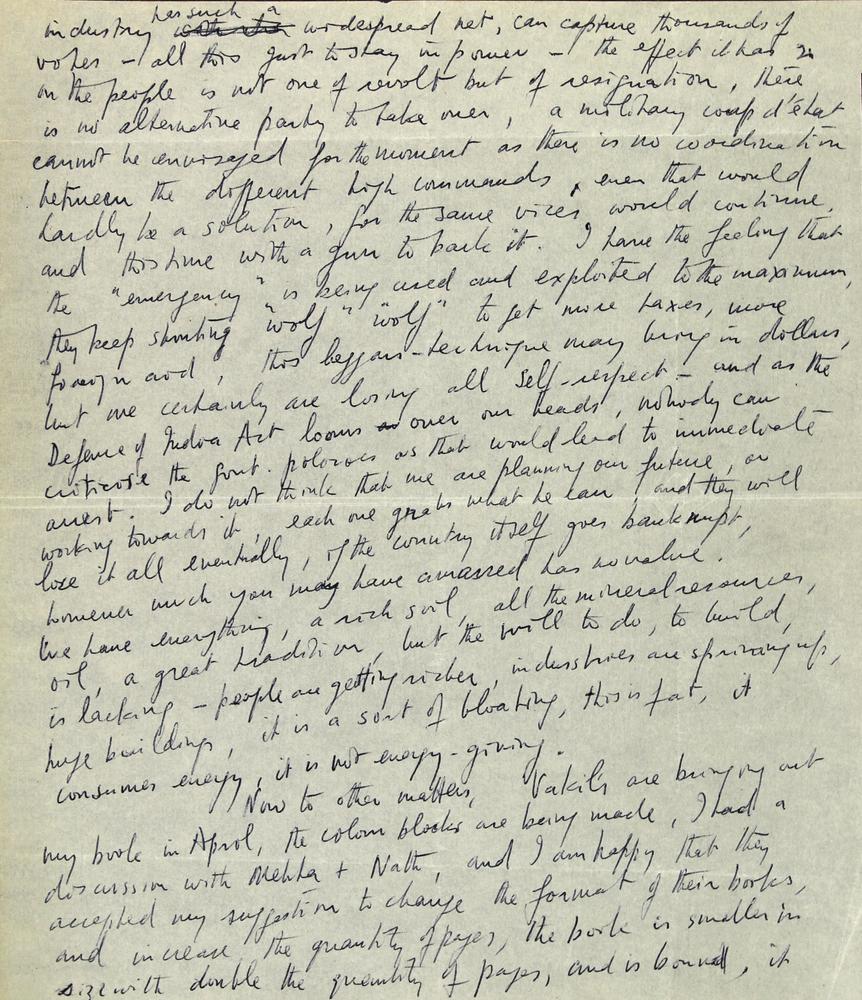 has such a
industry widespread net, can capture thousands of
votes – all this just to stay in power – the effect it has
on the people is not one of revolt but of resignation, there
is no alternative party to take over, a military coup d'état
cannot be envisaged for the moment as there is no coordination
between the different high commands, even that would
hardly be a solution, for the same vices would continue,
and this time with a gun to back it. I have the feeling that
the "emergency" is being used and exploited to the maximum,
they keep shouting "wolf" "wolf" to get more taxes, more
foreign aid, this beggars-technique may bring in dollars,
but we certainly are losing all self-respect – and as the
Defence of India Act looms over our heads, nobody can
criticise the govt. policies as that would lead to immediate
arrest. I do not think that we are planning our future, or
working towards it, each one grabs what he can and they will
lose it all eventually, if the country itself goes bankrupt,
however much you may have amassed has no value.
We have everything, a rich soil, all the mineral resources,
oil, a great tradition, but the will to do, to build,
is lacking – people are getting richer, industries are springing up,
huge buildings, it is a sort of bloating, this is fat, it
consumes energy, it is not energy-giving.
Now to other matters, Vakil's are bringing out
my book in April, the colour blocks are being made, I had a
discussion with Mehta + Nath, and I am happy that they
accepted my suggestion to change the format of their books,
and increase the quantity of pages, the book is smaller in
size with double the quantity of pages, and is bound, it